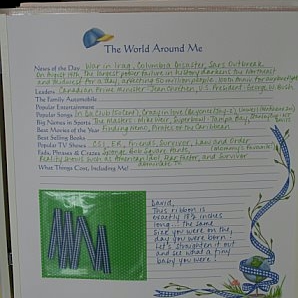 The World Around Me
News of the Day War in Iraq, Columbia Disaster, Sars Outbreak.
On August 14th, the largest power failure in history darkens the Northeast
and Midwest for a day, affecting 50 million people.
Leaders Canadian Prime Minister - Jean Chretien, U.S. President, George W. Bush
The Family Automobile
Popular Entertainment
Popular Songs In Da Club (50 Cent), Crazy in Love (Beyonce/Jay-Z),
Big Names in Sports The Masters: Mike Weir, Superbowl: Tampa Bay,
Best Movies of the Year Finding Nemo, Pirates of the Caribbean
Best Selling Books
Popular TV Shows CSI, ER, Friends, Survivor, Law and Order
Fads, Phrases & Crazes Sponge Bob Square Pants,
Reality Shows such as American Idol, Fear Factor, and Survivor
What Things Cost, Including Me!
David,
This ribbon is
exactly 18½ inches
long... the same
size you were on the
day you were born!
Let's straighten it out
and see what a tiny
baby you were!